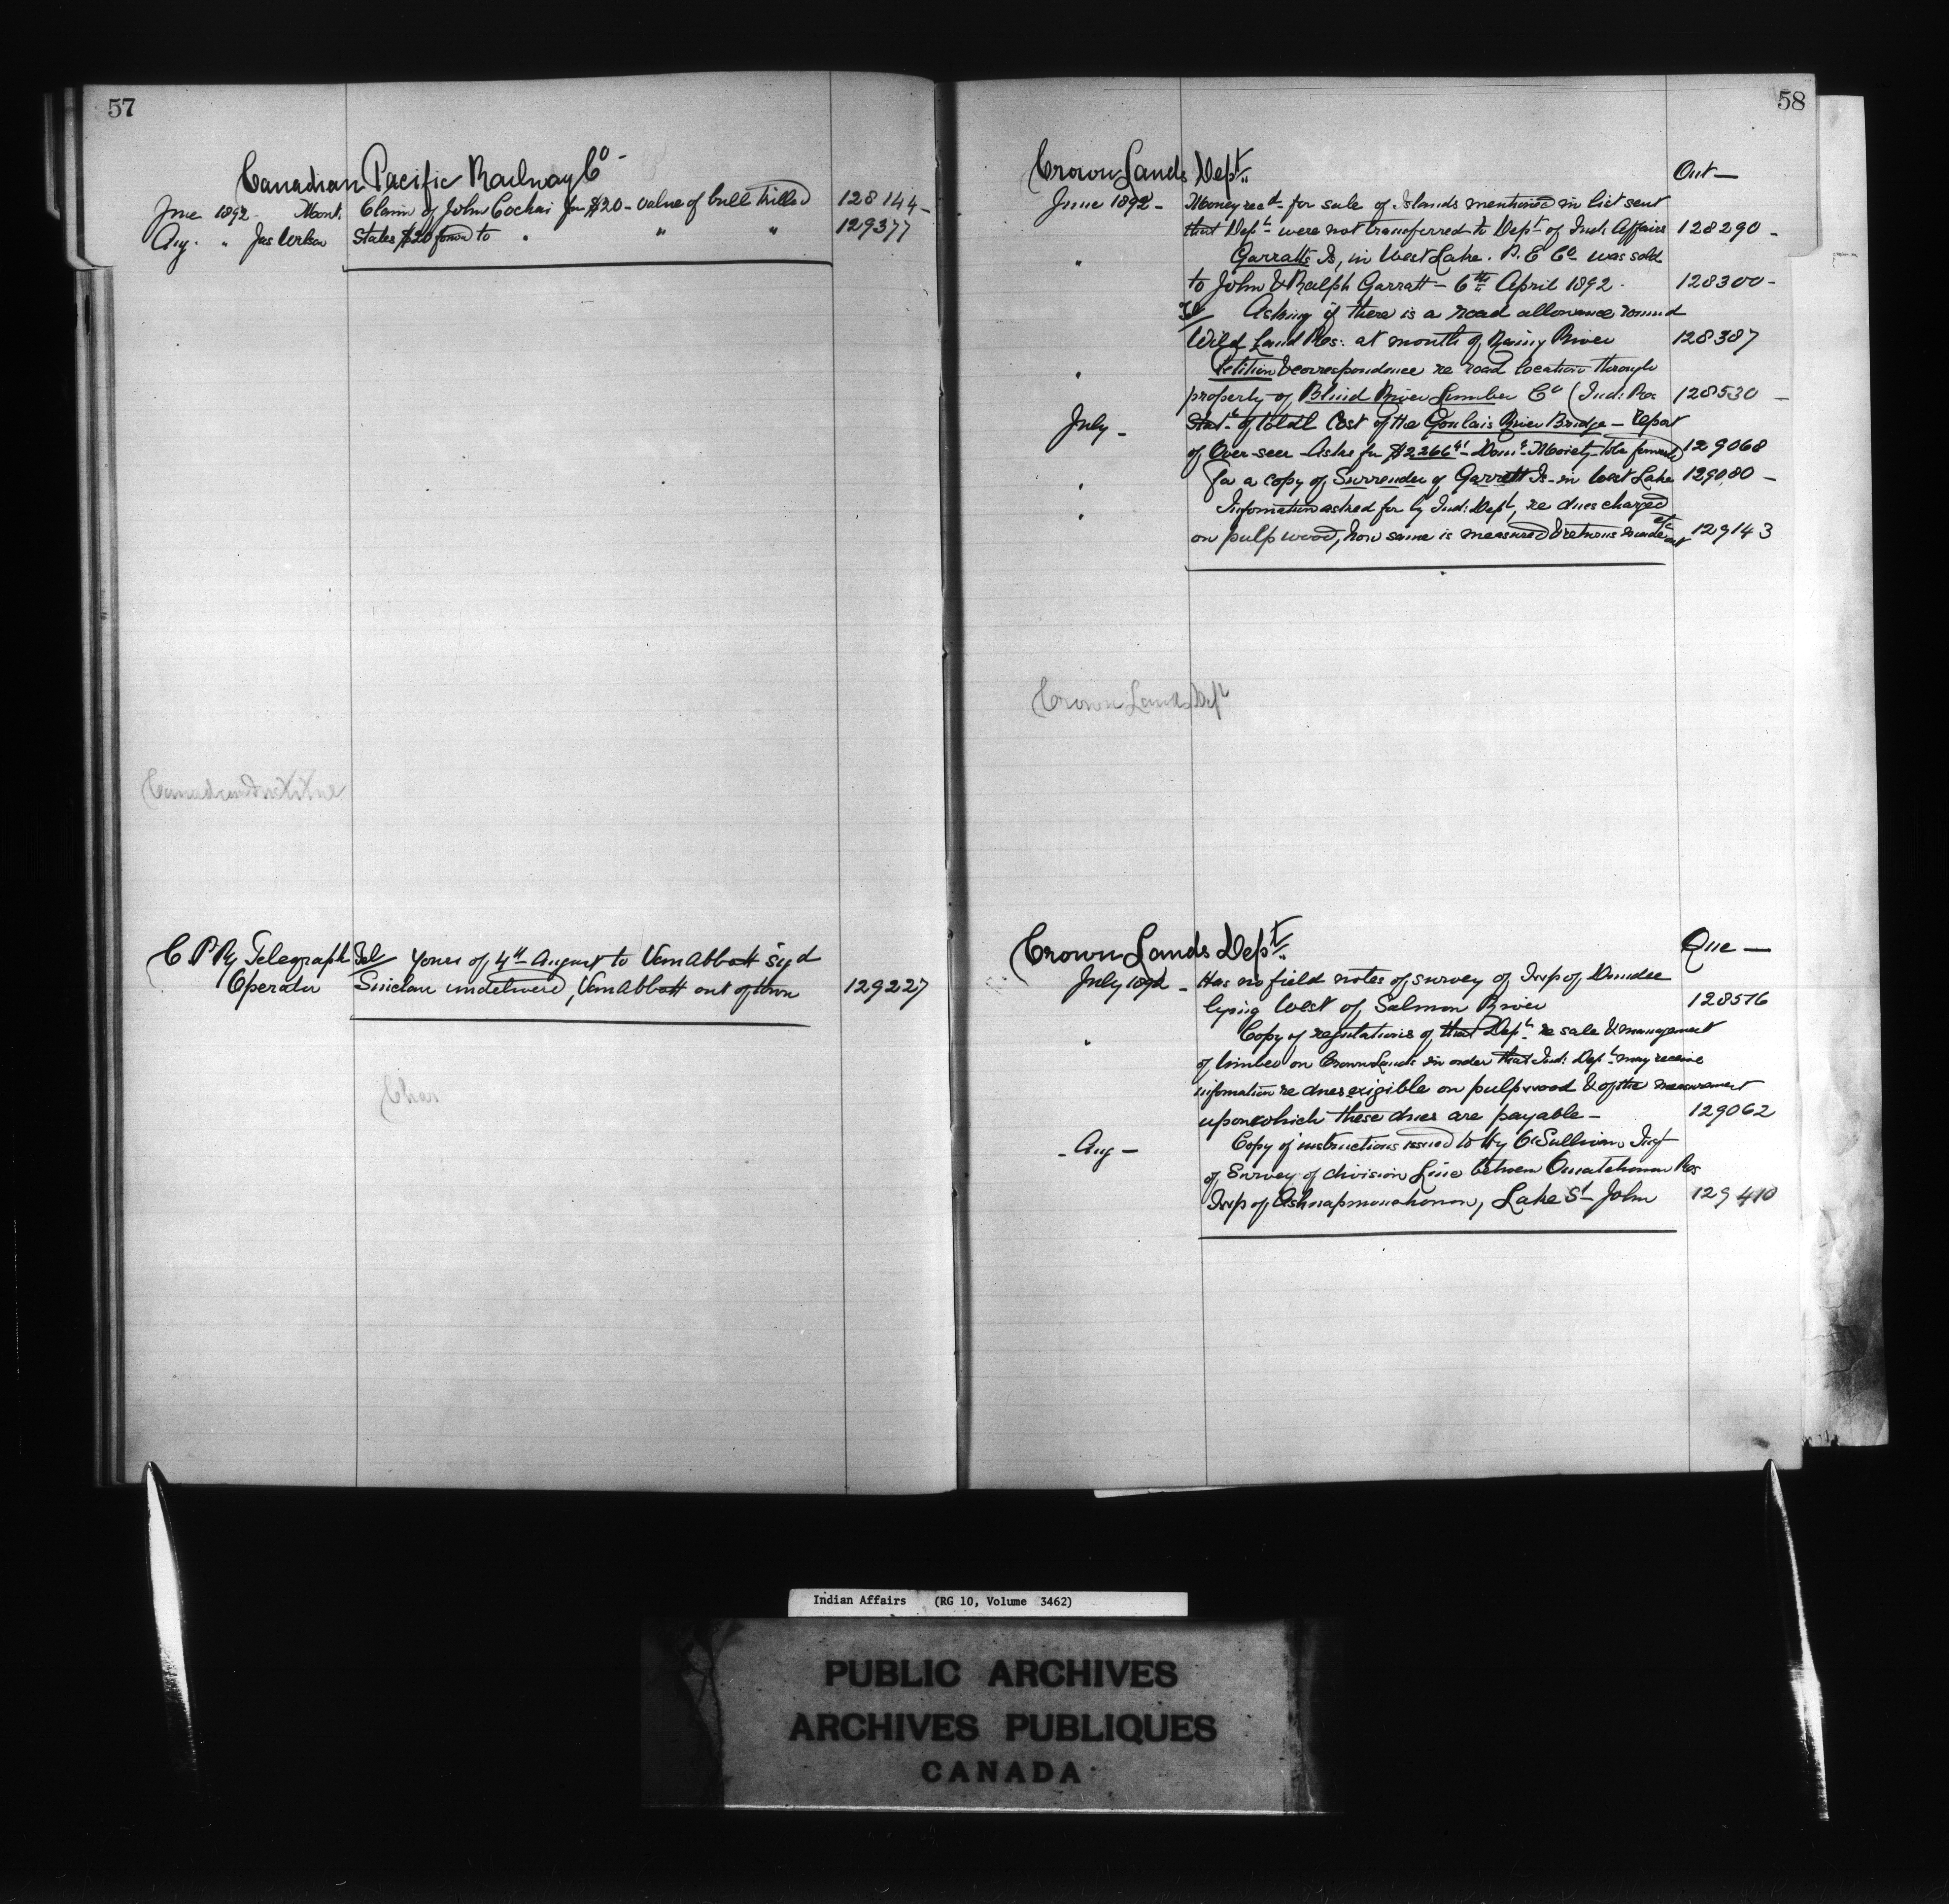 57
Canadian Pacific Railway Co -
June 1892 - Mont. Claim of John Cochai for $20 - value of bull killed 128144 -
Aug. " Jas States $20 forwd to " " " 129377
Canadian Institute
C. P. Ry Telegraph Tel/ Yours of 4th August to VanAbbott sigd
Operator Sinclair undelivered, VanAbbott out of town 129227
Char
58
Crown Lands Dept. Ont -
June 1892 - Money recd for sale of Islands mentioned in list sent
that Dept were not transferred to Dept of Ind. Affairs 128290 -
" Garratts Is, in West Lake. P. E Co was sold
to John & Ralph Garratt - 6th April 1892 - 128300 -
Tel/ Asking if there is a road allowance round
Wild Land Res: at mouth of Rainy River 128387
" Petition & correspondence re road location through
property of Blind River Lumber Co (Ind: Res 128530 -
July - Stat. of total Cost of the Goulais River Bridge - report
of Over-seer - Asks for $2266 - Domn Moiety to be forwarded 129068
" For a copy of Surrender of Garratt Is - in West Lake 129080 -
" Information asked for by Ind: Dept, re dues charged
on pulp wood, how same is measured & returns made out etc 129143
Crown Lands Dept
Crown Lands Dept. Que -
July 1892 - Has no field notes of survey of Twp of Dundee
lying West of Salmon River 128576
" Copy of regulations of that Dept re sale & management
of timber on Crown Lands in order that Ind: Dept may receive
information re dues exigible on pulpwood & of the measurement
upon which these dues are payable - 129062
- Aug - Copy of instructions issued to Hy O'Sullivan Insp
of Survey of division Line between Ouiatchouan Res
Twp of Ashuapmouchouan, Lake St John 129410
Indian Affairs (RG 10, Volume 3462)
PUBLIC ARCHIVES
ARCHIVES PUBLIQUES
CANADA